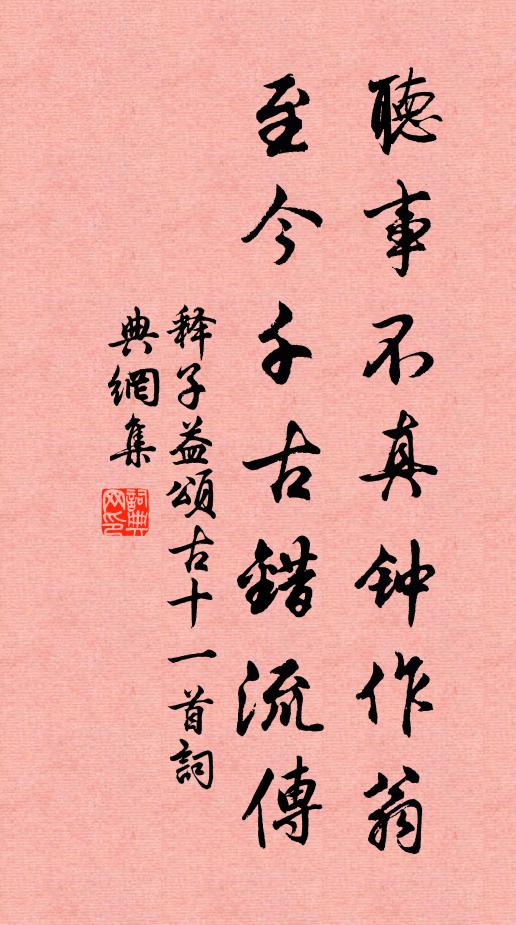 聽事不真钟作翁
至今千古錯流傳
释子益頌古十一首詞
典網集
詞典網印